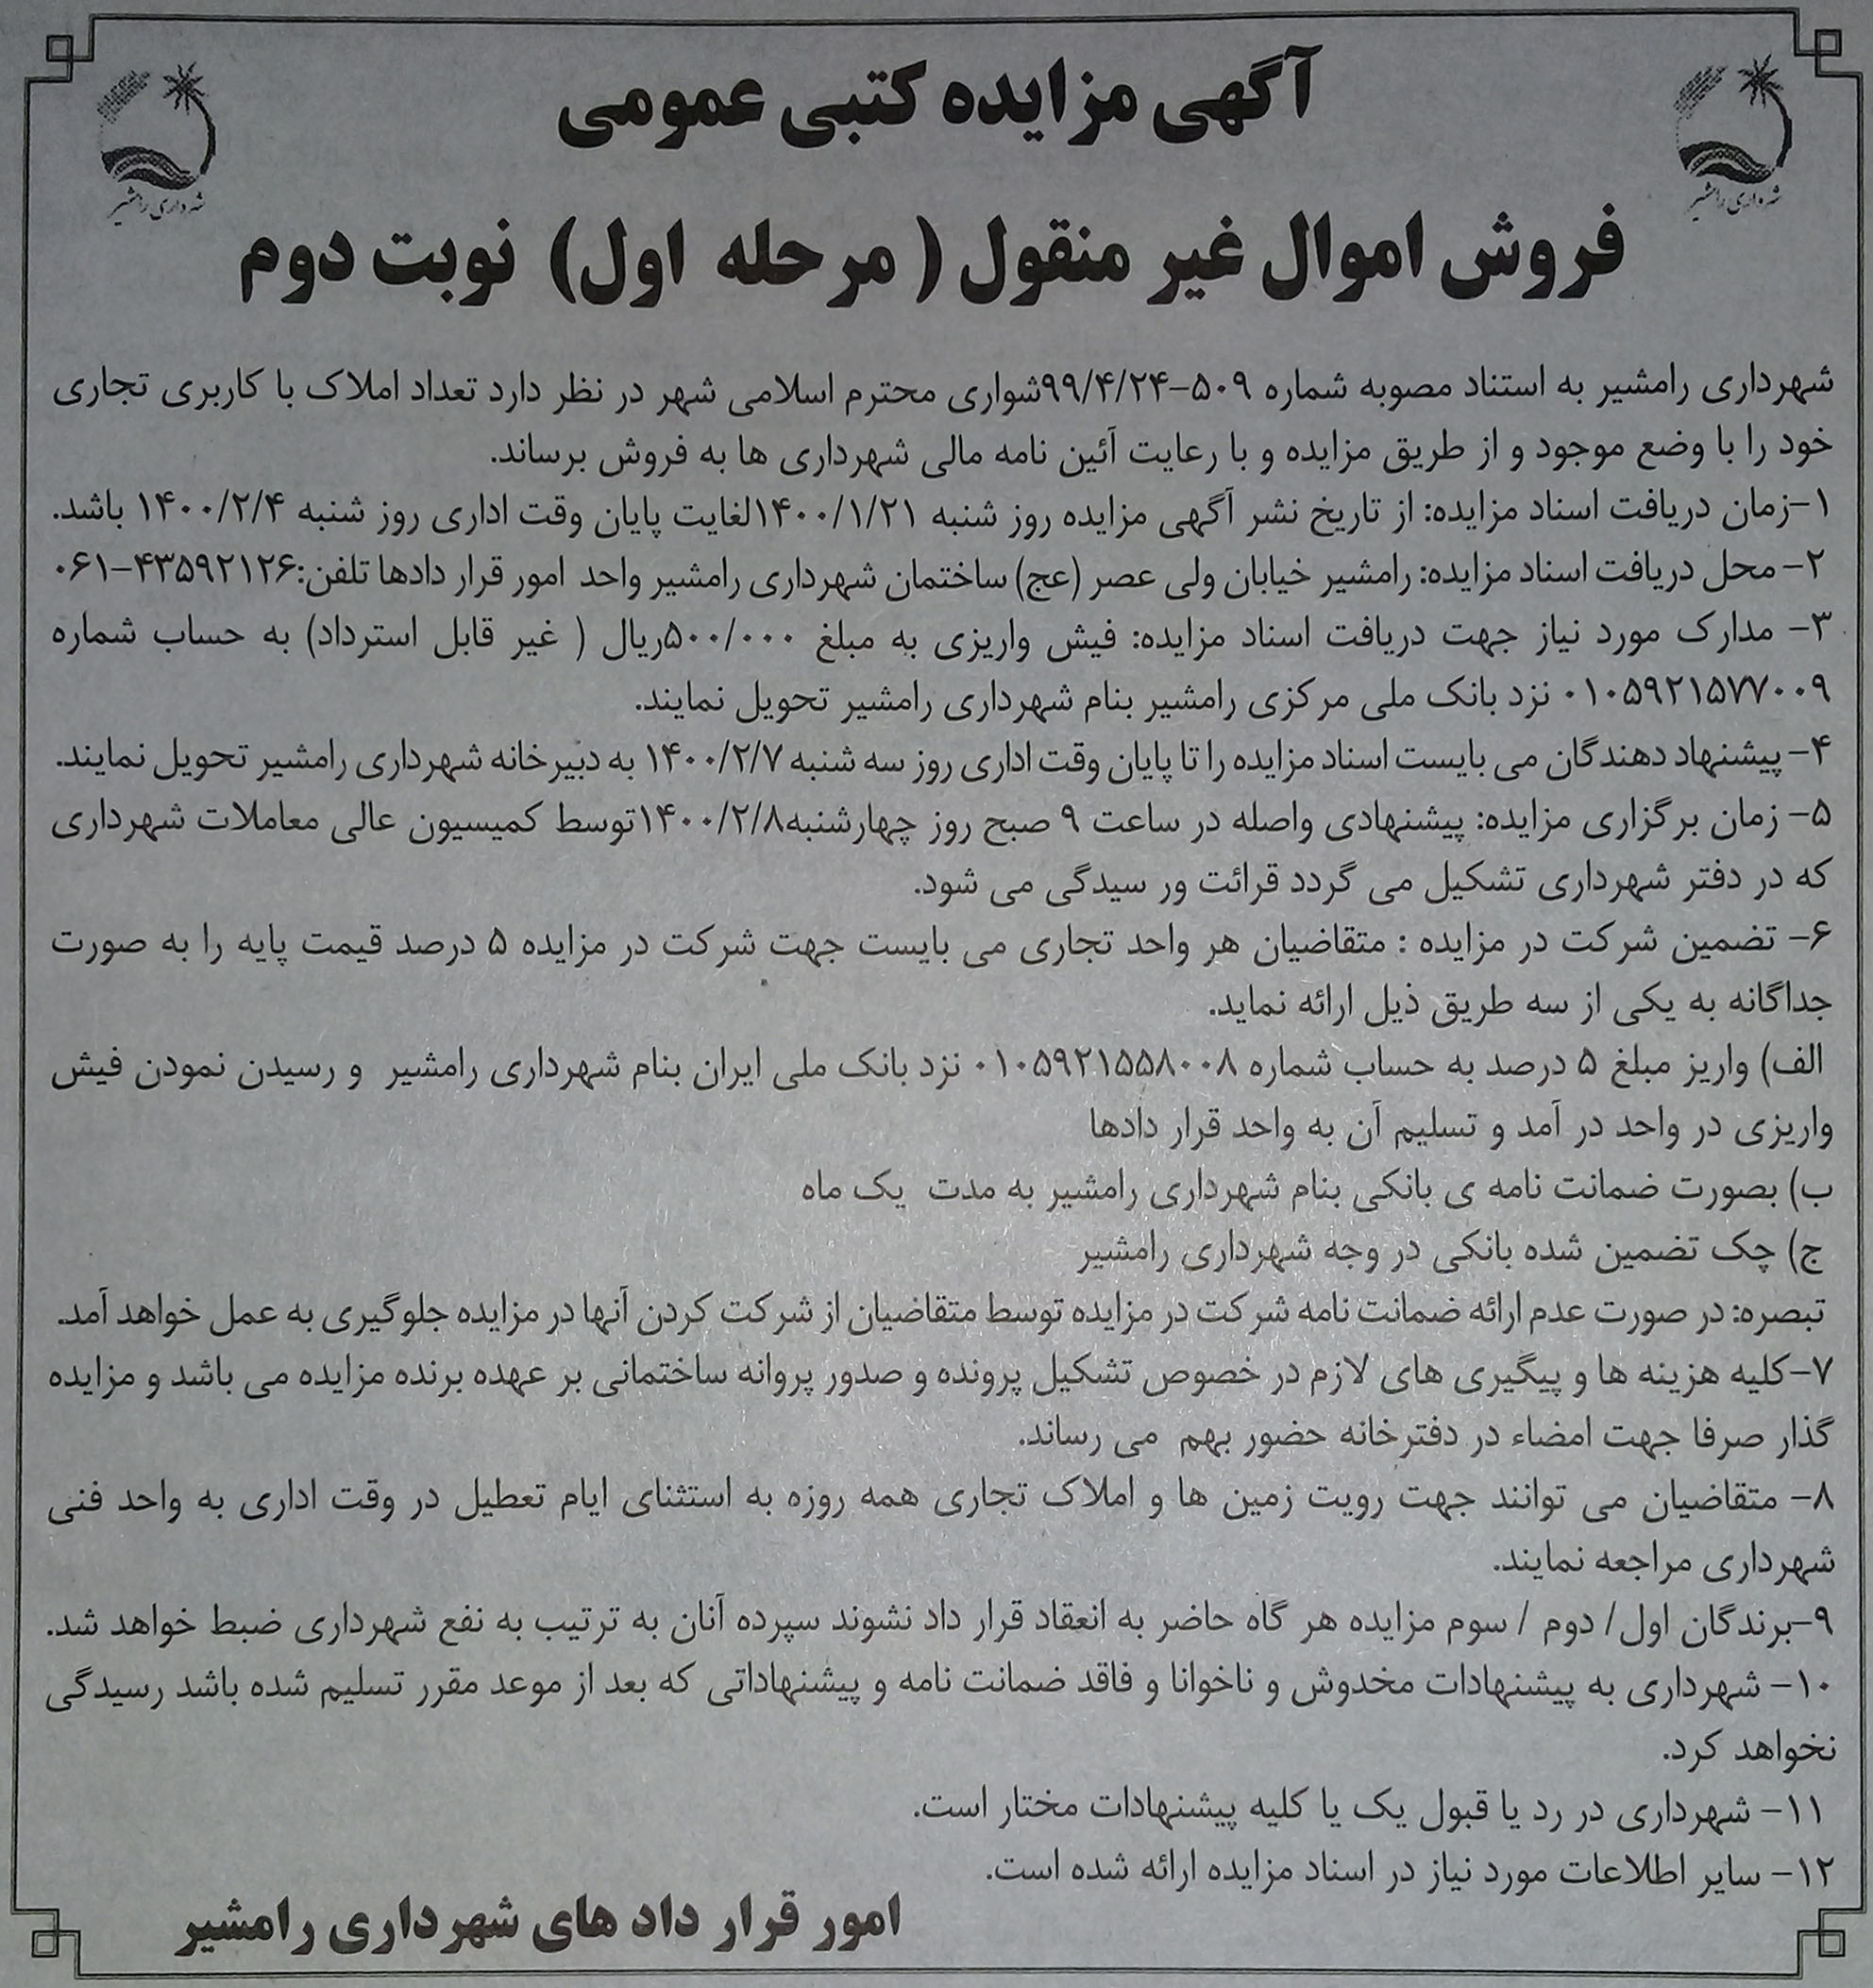 آگهی مزایده کتبی عمومی
شهرداری رامشیر
شهرداری رامشیر
فروش اموال غیر منقول ( مرحله اول) نوبت دوم
شهرداری رامشیر به استناد مصوبه شماره ۵۰۹-۹۹/۴/۲۴شواری محترم اسلامی شهر در نظر دارد تعداد املاک با کاربری تجاری
خود را با وضع موجود و از طریق مزایده و با رعایت آئین نامه مالی شهرداری ها به فروش برساند.
۱-زمان دریافت اسناد مزایده: از تاریخ نشر آگهی مزایده روز شنبه ۱۴۰۰/۱/۲۱لغایت پایان وقت اداری روز شنبه ۱۴۰۰/۲/۴ باشد.
۲- محل دریافت اسناد مزایده: رامشیر خیابان ولی عصر (عج) ساختمان شهرداری رامشیر واحد امور قرار دادها تلفن:۴۳۵۹۲۱۲۶-۰۶۱
۳- مدارک مورد نیاز جهت دریافت اسناد مزایده: فیش واریزی به مبلغ ۵۰۰/۰۰۰ریال ( غیر قابل استرداد) به حساب شماره
۰۱۰۵۹۲۱۵۷۷۰۰۹ نزد بانک ملی مرکزی رامشیر بنام شهرداری رامشیر تحویل نمایند.
۴- پیشنهاد دهندگان می بایست اسناد مزایده را تا پایان وقت اداری روز سه شنبه ۱۴۰۰/۲/۷ به دبیرخانه شهرداری رامشیر تحویل نمایند.
۵- زمان برگزاری مزایده: پیشنهادی واصله در ساعت ۹ صبح روز چهارشنبه۱۴۰۰/۲/۸توسط کمیسیون عالی معاملات شهرداری
که در دفتر شهرداری تشکیل می گردد قرائت ور سیدگی می شود.
۶- تضمین شرکت در مزایده : متقاضیان هر واحد تجاری می بایست جهت شرکت در مزایده ۵ درصد قیمت پایه را به صورت
جداگانه به یکی از سه طریق ذیل ارائه نماید.
الف) واریز مبلغ ۵ درصد به حساب شماره ۰۱۰۵۹۲۱۵۵۸۰۰۸ نزد بانک ملی ایران بنام شهرداری رامشیر و رسیدن نمودن فیش
واریزی در واحد در آمد و تسلیم آن به واحد قرار دادها
ب) بصورت ضمانت نامه ی بانکی بنام شهرداری رامشیر به مدت یک ماه
ج) چک تضمین شده بانکی در وجه شهرداری رامشیر
تبصره: در صورت عدم ارائه ضمانت نامه شرکت در مزایده توسط متقاضیان از شرکت کردن آنها در مزایده جلوگیری به عمل خواهد آمد.
۷-کلیه هزینه ها و پیگیری های لازم در خصوص تشکیل پرونده و صدور پروانه ساختمانی بر عهده برنده مزایده می باشد و مزایده
گذار صرفا جهت امضاء در دفترخانه حضور بهم می رساند.
۸- متقاضیان می توانند جهت رویت زمین ها و املاک تجاری همه روزه به استثنای ایام تعطیل در وقت اداری به واحد فنی
شهرداری مراجعه نمایند.
۹-برندگان اول/ دوم / سوم مزایده هر گاه حاضر به انعقاد قرار داد نشوند سپرده آنان به ترتیب به نفع شهرداری ضبط خواهد شد.
۱۰- شهرداری به پیشنهادات مخدوش و ناخوانا و فاقد ضمانت نامه و پیشنهاداتی که بعد از موعد مقرر تسلیم شده باشد رسیدگی
نخواهد کرد.
۱۱- شهرداری در رد یا قبول یک یا کلیه پیشنهادات مختار است.
۱۲- سایر اطلاعات مورد نیاز در اسناد مزایده ارائه شده است.
امور قرار داد های شهرداری رامشیر